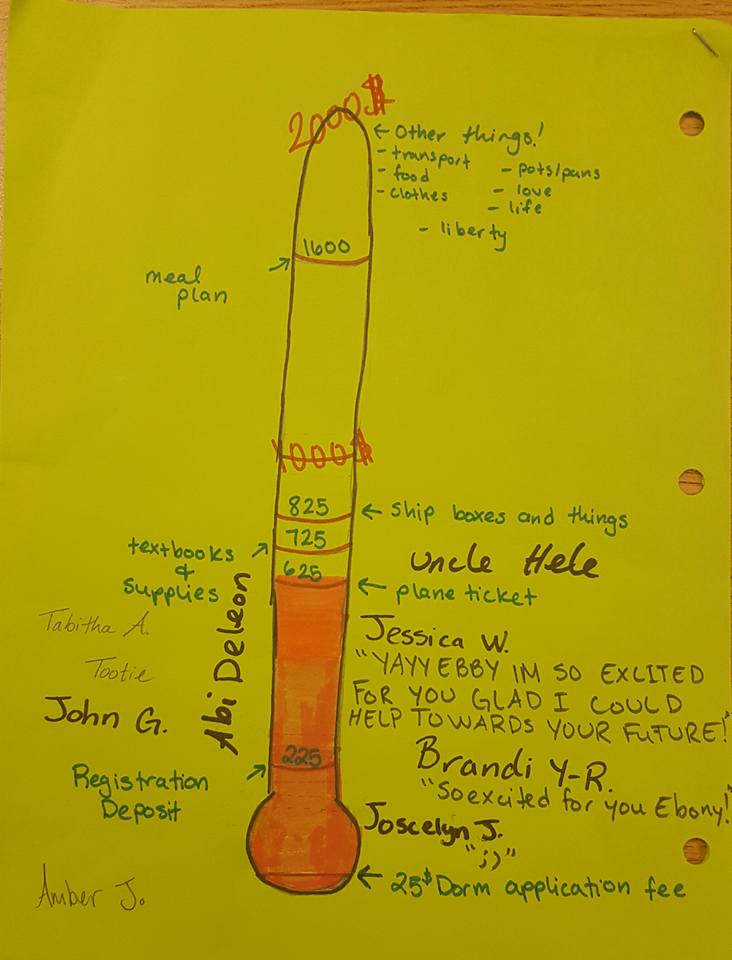 2000$
← Other things!
- transport
- pots/pans
- food
- love
- clothes
- life
- liberty
1600
meal
plan
1000$
825
← Ship boxes and things
725
textbooks
&
supplies
Uncle Hele
625
← plane ticket
Abi Deleon
Tabitha A.
Tootie
John G.
Jessica W.
"YAYY EBBY IM SO EXCITED
FOR YOU GLAD I COULD
HELP TOWARDS YOUR FUTURE!"
225
Registration
Deposit
Brandi Y-R.
"So excited for you Ebony!"
Joscelyn J.
";)"
← 25$ Dorm application fee
Amber J.